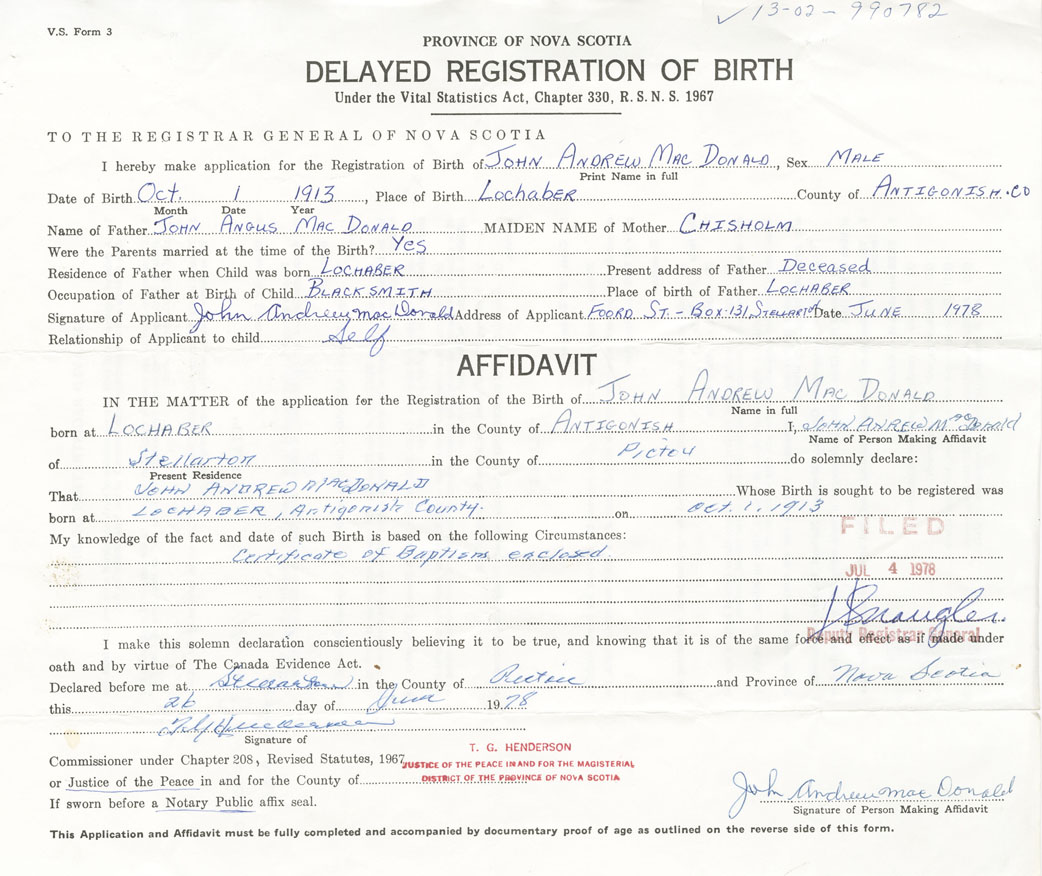 ✓ 13-02-990782
V.S. Form 3
PROVINCE OF NOVA SCOTIA
DELAYED REGISTRATION OF BIRTH
Under the Vital Statistics Act, Chapter 330, R. S. N. S. 1967
TO THE REGISTRAR GENERAL OF NOVA SCOTIA
I hereby make application for the Registration of Birth of JOHN ANDREW MAC DONALD, Sex MALE
Print Name in full
Date of Birth Oct. 1 1913, Place of Birth Lochaber County of ANTIGONISH.CO
Month Date Year
Name of Father JOHN ANGUS MAC DONALD MAIDEN NAME of Mother CHISHOLM
Were the Parents married at the time of the Birth? Yes
Residence of Father when Child was born LOCHABER Present address of Father Deceased
Occupation of Father at Birth of Child BLACKSMITH Place of birth of Father LOCHABER
Signature of Applicant John Andrew mac Donald Address of Applicant FOORD ST.-BOX.131, STELLARTON Date JUNE 1978
Relationship of Applicant to child Self
AFFIDAVIT
IN THE MATTER of the application for the Registration of the Birth of JOHN ANDREW MAC DONALD
Name in full
born at LOCHABER in the County of ANTIGONISH I, JOHN ANDREW MacDonald
Name of Person Making Affidavit
of Stellarton in the County of Pictou do solemnly declare:
Present Residence
That JOHN ANDREW MACDONALD Whose Birth is sought to be registered was
born at LOCHABER, Antigonish County. on Oct. 1. 1913
My knowledge of the fact and date of such Birth is based on the following Circumstances:
Certificate of Baptism enclosed
FILED
JUL 4 1978
Deputy Registrar General
I make this solemn declaration conscientiously believing it to be true, and knowing that it is of the same force and effect as if made under
oath and by virtue of The Canada Evidence Act.
Declared before me at Stellarton in the County of Pictou and Province of Nova Scotia
this 26 day of June 1978
Signature of
Commissioner under Chapter 208, Revised Statutes, 1967,
or Justice of the Peace in and for the County of
If sworn before a Notary Public affix seal.
T. G. HENDERSON
JUSTICE OF THE PEACE IN AND FOR THE MAGISTERIAL
DISTRICT OF THE PROVINCE OF NOVA SCOTIA
John Andrew mac Donald
Signature of Person Making Affidavit
This Application and Affidavit must be fully completed and accompanied by documentary proof of age as outlined on the reverse side of this form.